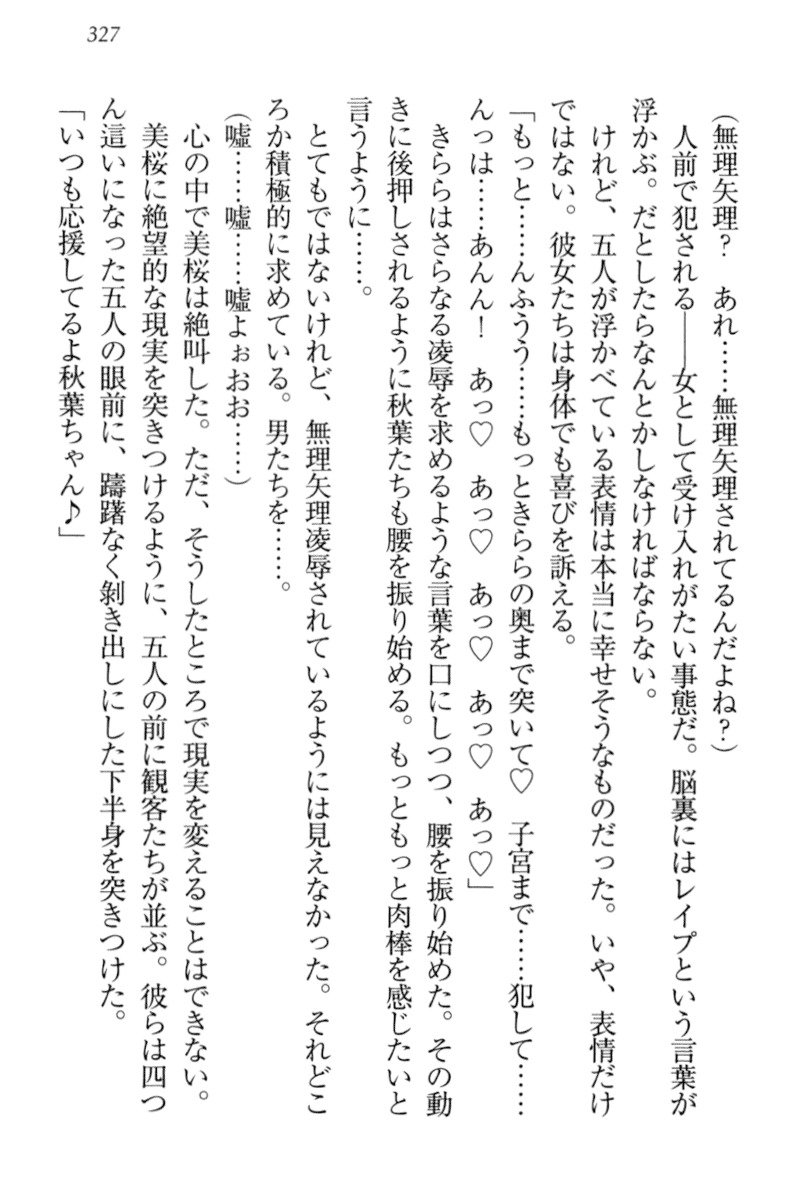 327
（無理矢理？　あれ……無理矢理されてるんだよね？）
人前で犯される――女として受け入れがたい事態だ。脳裏にはレイプという言葉が
浮かぶ。だとしたらなんとかしなければならない。
けれど、五人が浮かべている表情は本当に幸せそうなものだった。いや、表情だけ
ではない。彼女たちは身体でも喜びを訴える。
「もっと……んふうう……もっときららの奥まで突いて♡　子宮まで……犯して……
んっは……あんん！　あっ♡　あっ♡　あっ♡　あっ♡　あっ♡」
きららはさらなる凌辱を求めるような言葉を口にしつつ、腰を振り始めた。その動
きに後押しされるように秋葉たちも腰を振り始める。もっともっと肉棒を感じたいと
言うように……。
とてもではないけれど、無理矢理凌辱されているようには見えなかった。それどこ
ろか積極的に求めている。男たちを……。
（嘘……嘘……嘘よぉおお……）
心の中で美桜は絶叫した。ただ、そうしたところで現実を変えることはできない。
美桜に絶望的な現実を突きつけるように、五人の前に観客たちが並ぶ。彼らは四つ
ん這いになった五人の眼前に、躊躇なく剝き出しにした下半身を突きつけた。
「いつも応援してるよ秋葉ちゃん♪」